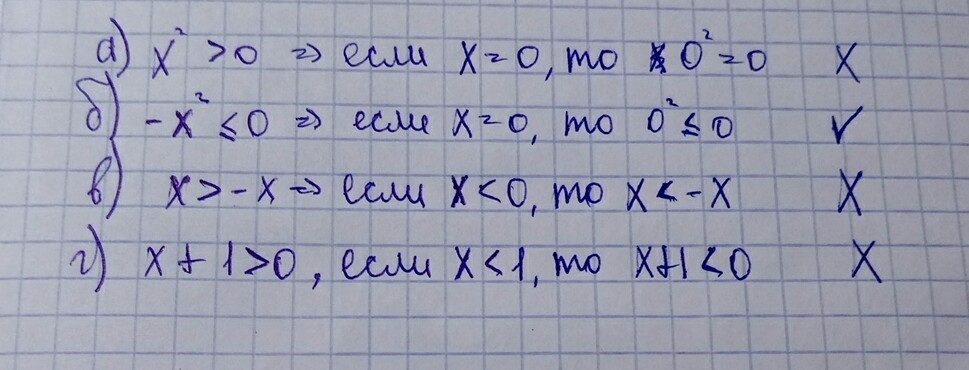 а) x² > 0 ⇒ если x = 0, то 0² = 0 X
б) -x² ≤ 0 ⇒ если x = 0, то 0² ≤ 0 ✓
в) x > -x ⇒ если x < 0, то x < -x X
г) x + 1 > 0, если x < 1, то x+1 < 0 X